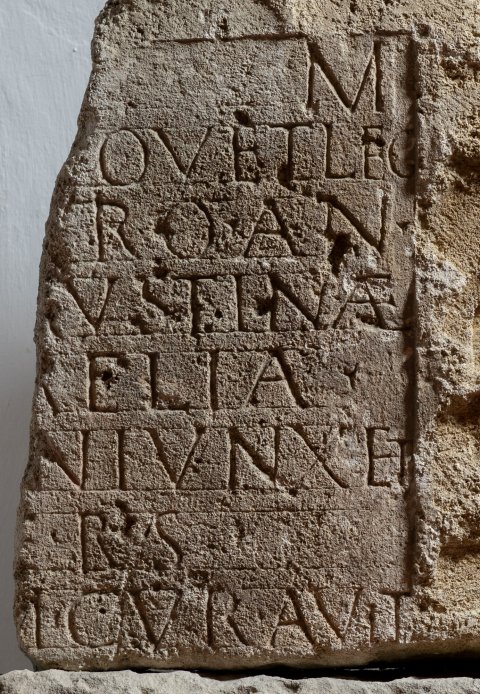 M
QVETLEG
ROAN
VSTINÆ
ELIA
NIVNXET
RS
CVRAVIT